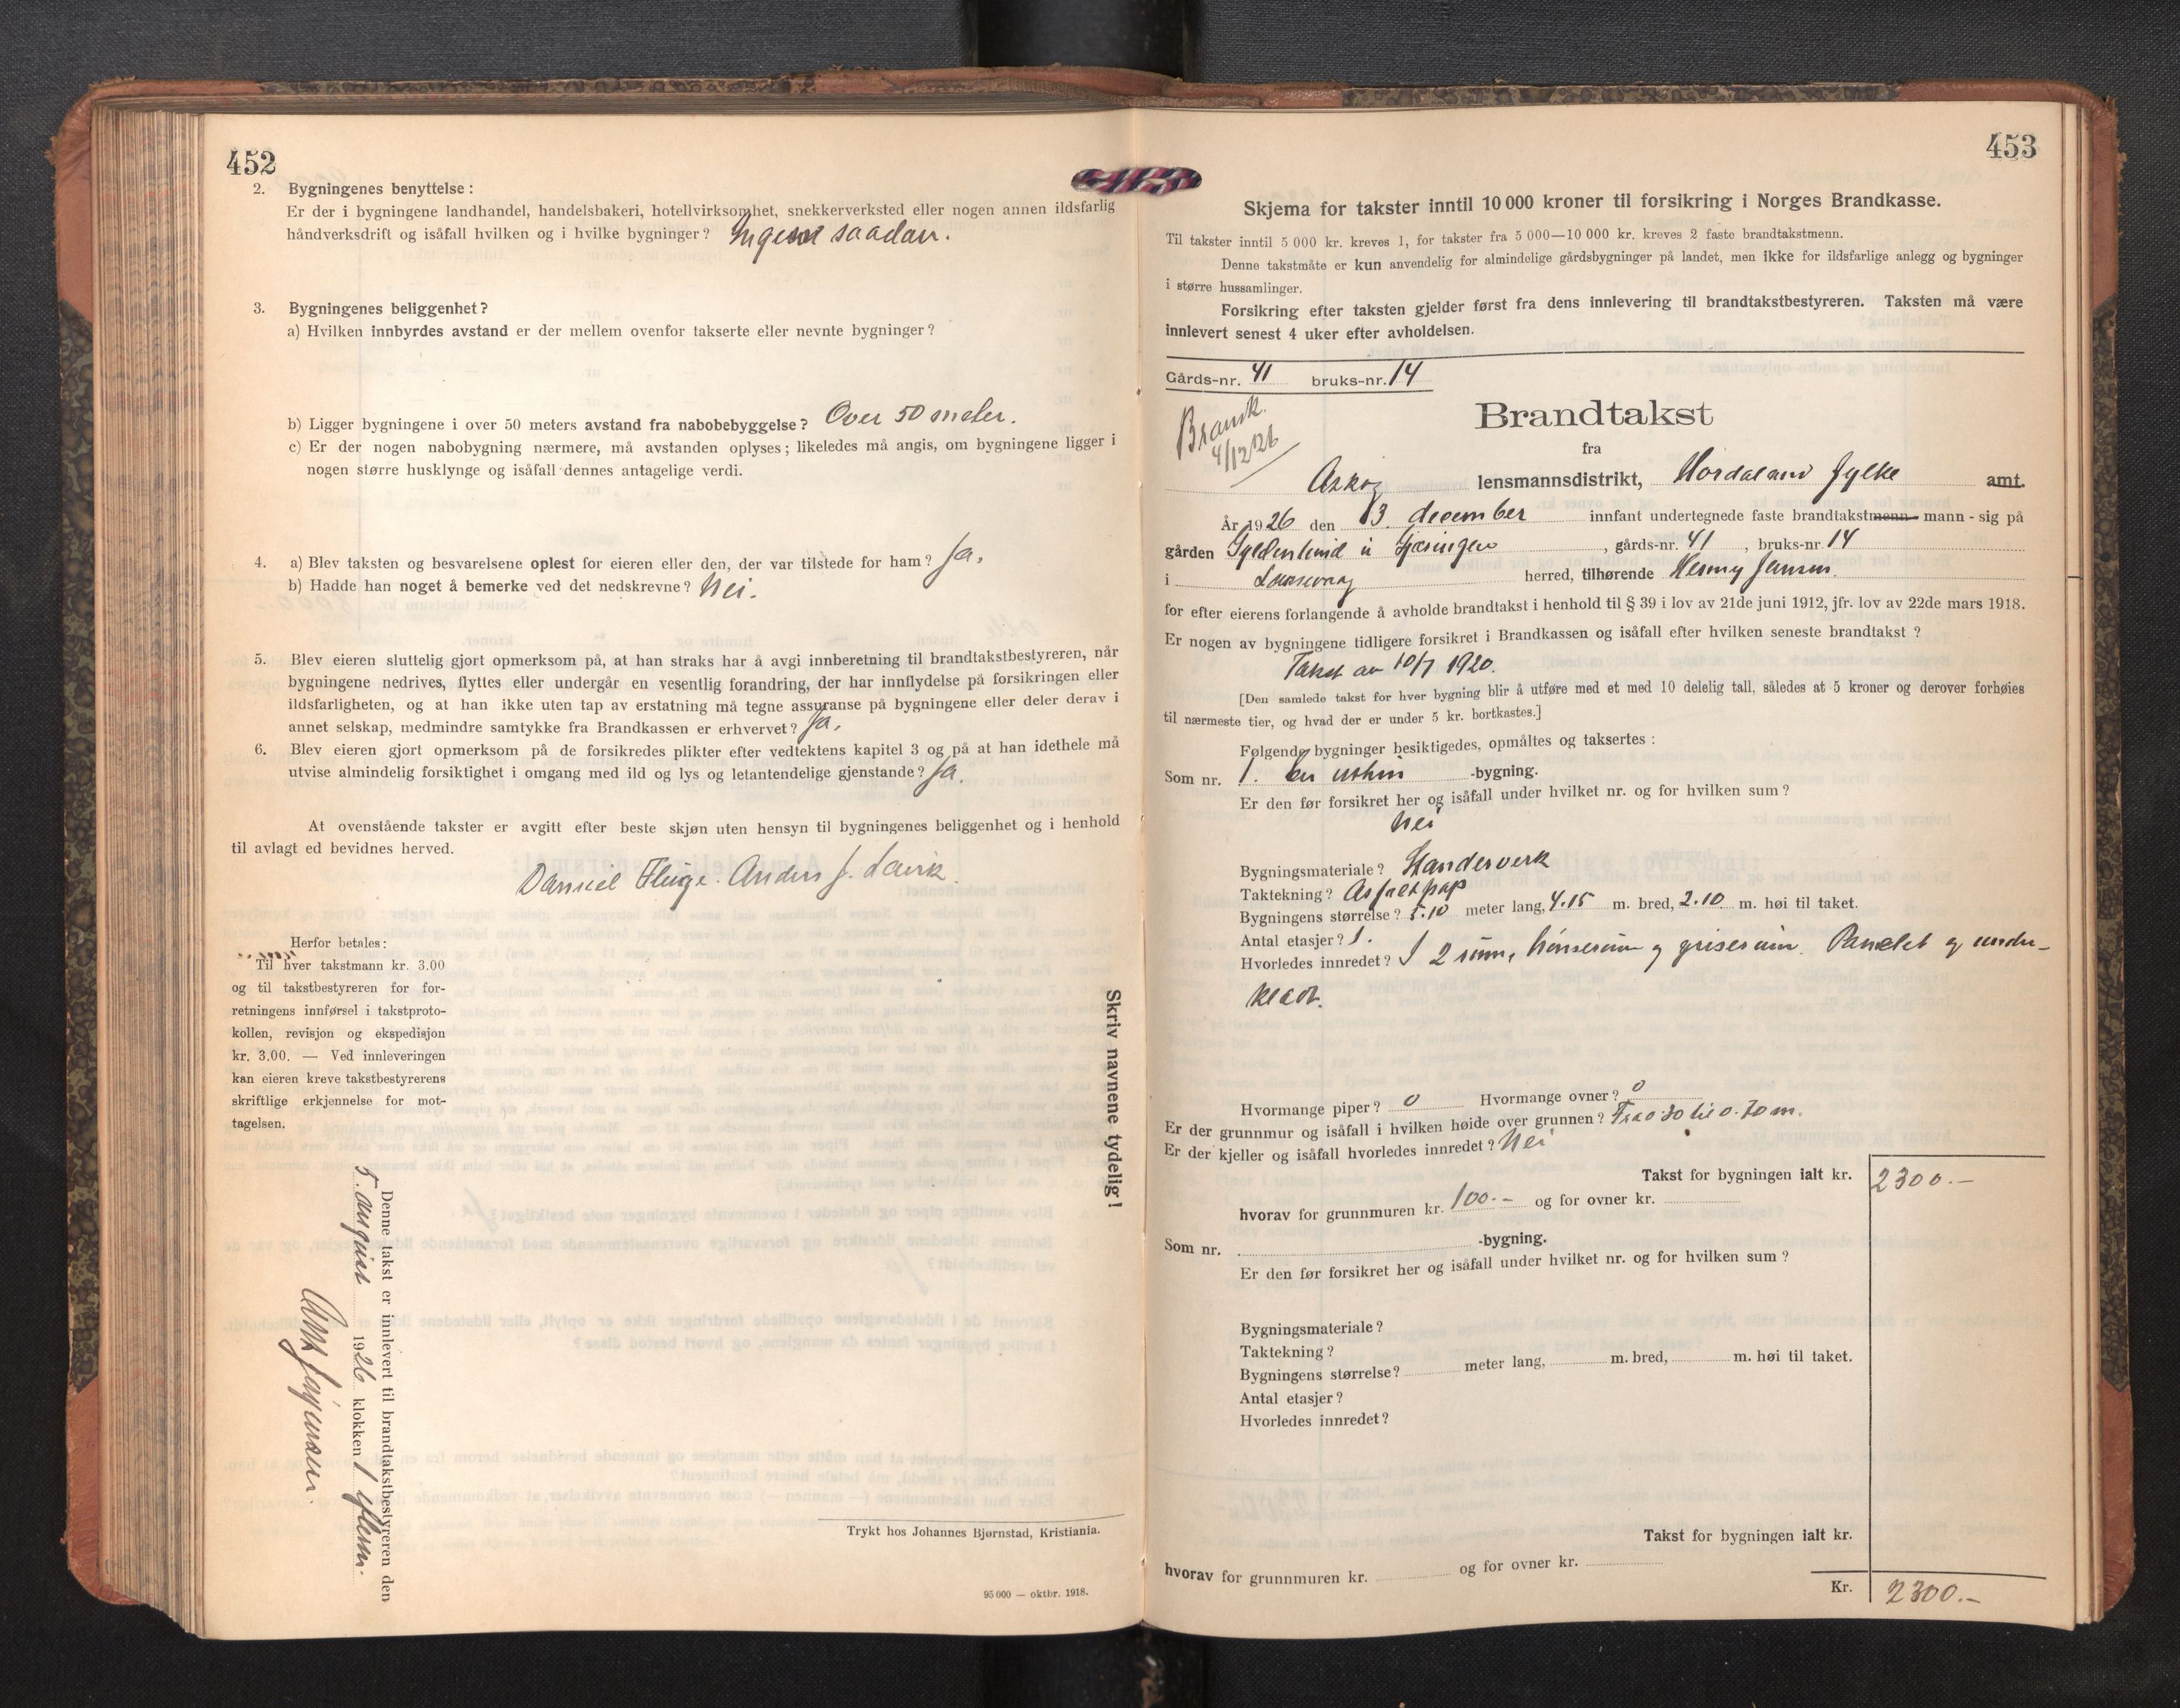 452
2. Bygningenes benyttelse :
Er der i bygningene landhandel, handelsbakeri, hotellvirksomhet, snekkerverksted eller nogen annen ildsfarlig
håndverksdrift og isåfall hvilken og i hvilke bygninger? Ingen saadan.
3. Bygningenes beliggenhet?
a) Hvilken innbyrdes avstand er der mellem ovenfor takserte eller nevnte bygninger?
b) Ligger bygningene i over 50 meters avstand fra nabobebyggelse? Over 50 meter.
c) Er der nogen nabobygning nærmere, må avstanden oplyses; likeledes må angis, om bygningene ligger i
nogen større husklynge og isåfall dennes antagelige verdi.
4. a) Blev taksten og besvarelsene oplest for eieren eller den, der var tilstede for ham? Ja.
b) Hadde han noget å bemerke ved det nedskrevne? Nei.
5. Blev eieren sluttelig gjort opmerksom på, at han straks har å avgi innberetning til brandtakstbestyreren, når
bygningene nedrives, flyttes eller undergår en vesentlig forandring, der har innflydelse på forsikringen eller
ildsfarligheten, og at han ikke uten tap av erstatning må tegne assuranse på bygningene eller deler derav i
annet selskap, medmindre samtykke fra Brandkassen er erhvervet? Ja.
6. Blev eieren gjort opmerksom på de forsikredes plikter efter vedtektens kapitel 3 og på at han idethele må
utvise almindelig forsiktighet i omgang med ild og lys og letantendelige gjenstande? Ja.
At ovenstående takster er avgitt efter beste skjøn uten hensyn til bygningenes beliggenhet og i henhold
til avlagt ed bevidnes herved.
Daniel Fluge. Anders J. Lavik.
Herfor betales:
Til hver takstmann kr. 3.00
og til takstbestyreren for for-
retningens innførsel i takstproto-
kollen, revisjon og ekspedisjon
kr. 3.00. — Ved innleveringen
kan eieren kreve takstbestyrerens
skriftlige erkjønnelse for mot-
tagelsen.
Skriv navnene tydelig!
Denne takst er innlevert til brandtakstbestyreren den
5. august 1926 klokken 1 efterm.
Trykt hos Johannes Bjørnstad, Kristiania.
95 000 — oktbr. 1918.
453
Skjema for takster inntil 10 000 kroner til forsikring i Norges Brandkasse.
Til takster inntil 5 000 kr. kreves 1, for takster fra 5 000—10 000 kr. kreves 2 faste brandtakstmenn.
Denne takstmåte er kun anvendelig for almindelige gårdsbygninger på landet, men ikke for ildsfarlige anlegg og bygninger
i større hussamlinger.
Forsikring efter taksten gjelder først fra dens innlevering til brandtakstbestyreren. Taksten må være
innlevert senest 4 uker efter avholdelsen.
Gårds-nr. 41 bruks-nr. 14
4/12 26
Brandtakst
fra
Askøy lensmannsdistrikt, Hordaland fylke amt.
År 1926 den 13. december innfant undertegnede faste brandtakstmenn mann - sig på
gården Gyldenlund i Gjæsingen, gårds-nr. 41, bruks-nr. 14
i Laksevaag herred, tilhørende Henny Jensen.
for efter eierens forlangende å avholde brandtakst i henhold til § 39 i lov av 21de juni 1912, jfr. lov av 22de mars 1918.
Er nogen av bygningene tidligere forsikret i Brandkassen og isåfall efter hvilken seneste brandtakst ?
Takst av 10/7 1920.
[Den samlede takst for hver bygning blir å utføre med et med 10 delelig tall, således at 5 kroner og derover forhøies
til nærmeste tier, og hvad der er under 5 kr. bortkastes.]
Følgende bygninger besiktigedes, opmåltes og taksertes :
Som nr. 1. en uthus -bygning.
Er den før forsikret her og isåfall under hvilket nr. og for hvilken sum ?
Nei
Bygningsmateriale? Standerverk
Taktekning? Asfaltpap
Bygningens størrelse? 5.10 meter lang, 4.15 m. bred, 2.10 m. høi til taket.
Antal etasjer? 1.
Hvorledes innredet? I 2 rum, hønserum og griserum. Panelet og under-
klædt.
Hvormange piper? 0 Hvormange ovner? 0
Er der grunnmur og isåfall i hvilken høide over grunnen? Fra 0.30 til 0.70 m.
Er der kjeller og isåfall hvorledes innredet? Nei
Takst for bygningen ialt kr. 2300.-
hvorav for grunnmuren kr. 100.- og for ovner kr.
Som nr. -bygning.
Er den før forsikret her og isåfall under hvilket nr. og for hvilken sum ?
Bygningsmateriale?
Taktekning?
Bygningens størrelse? meter lang, m. bred, m. høi til taket.
Antal etasjer?
Hvorledes innredet?
Takst for bygningen ialt kr.
hvorav for grunnmuren kr. og for ovner kr.
Kr. 2300.-